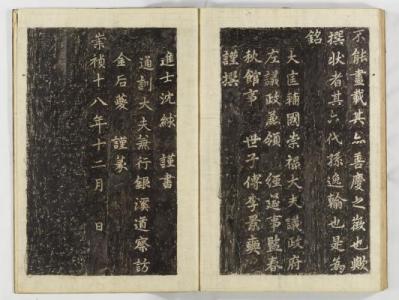 不能盡載其亦善慶之徵也歟
撰狀者其六代孫逸輪也是為
銘
大匡輔國崇祿大夫議政府
左議政兼領 經筵事監春
秋館事 世子傅李景奭
謹撰
進士沈 謹書
通訓大夫兼行銀溪道察訪
金 謹篆
崇禎十八年十二月 日